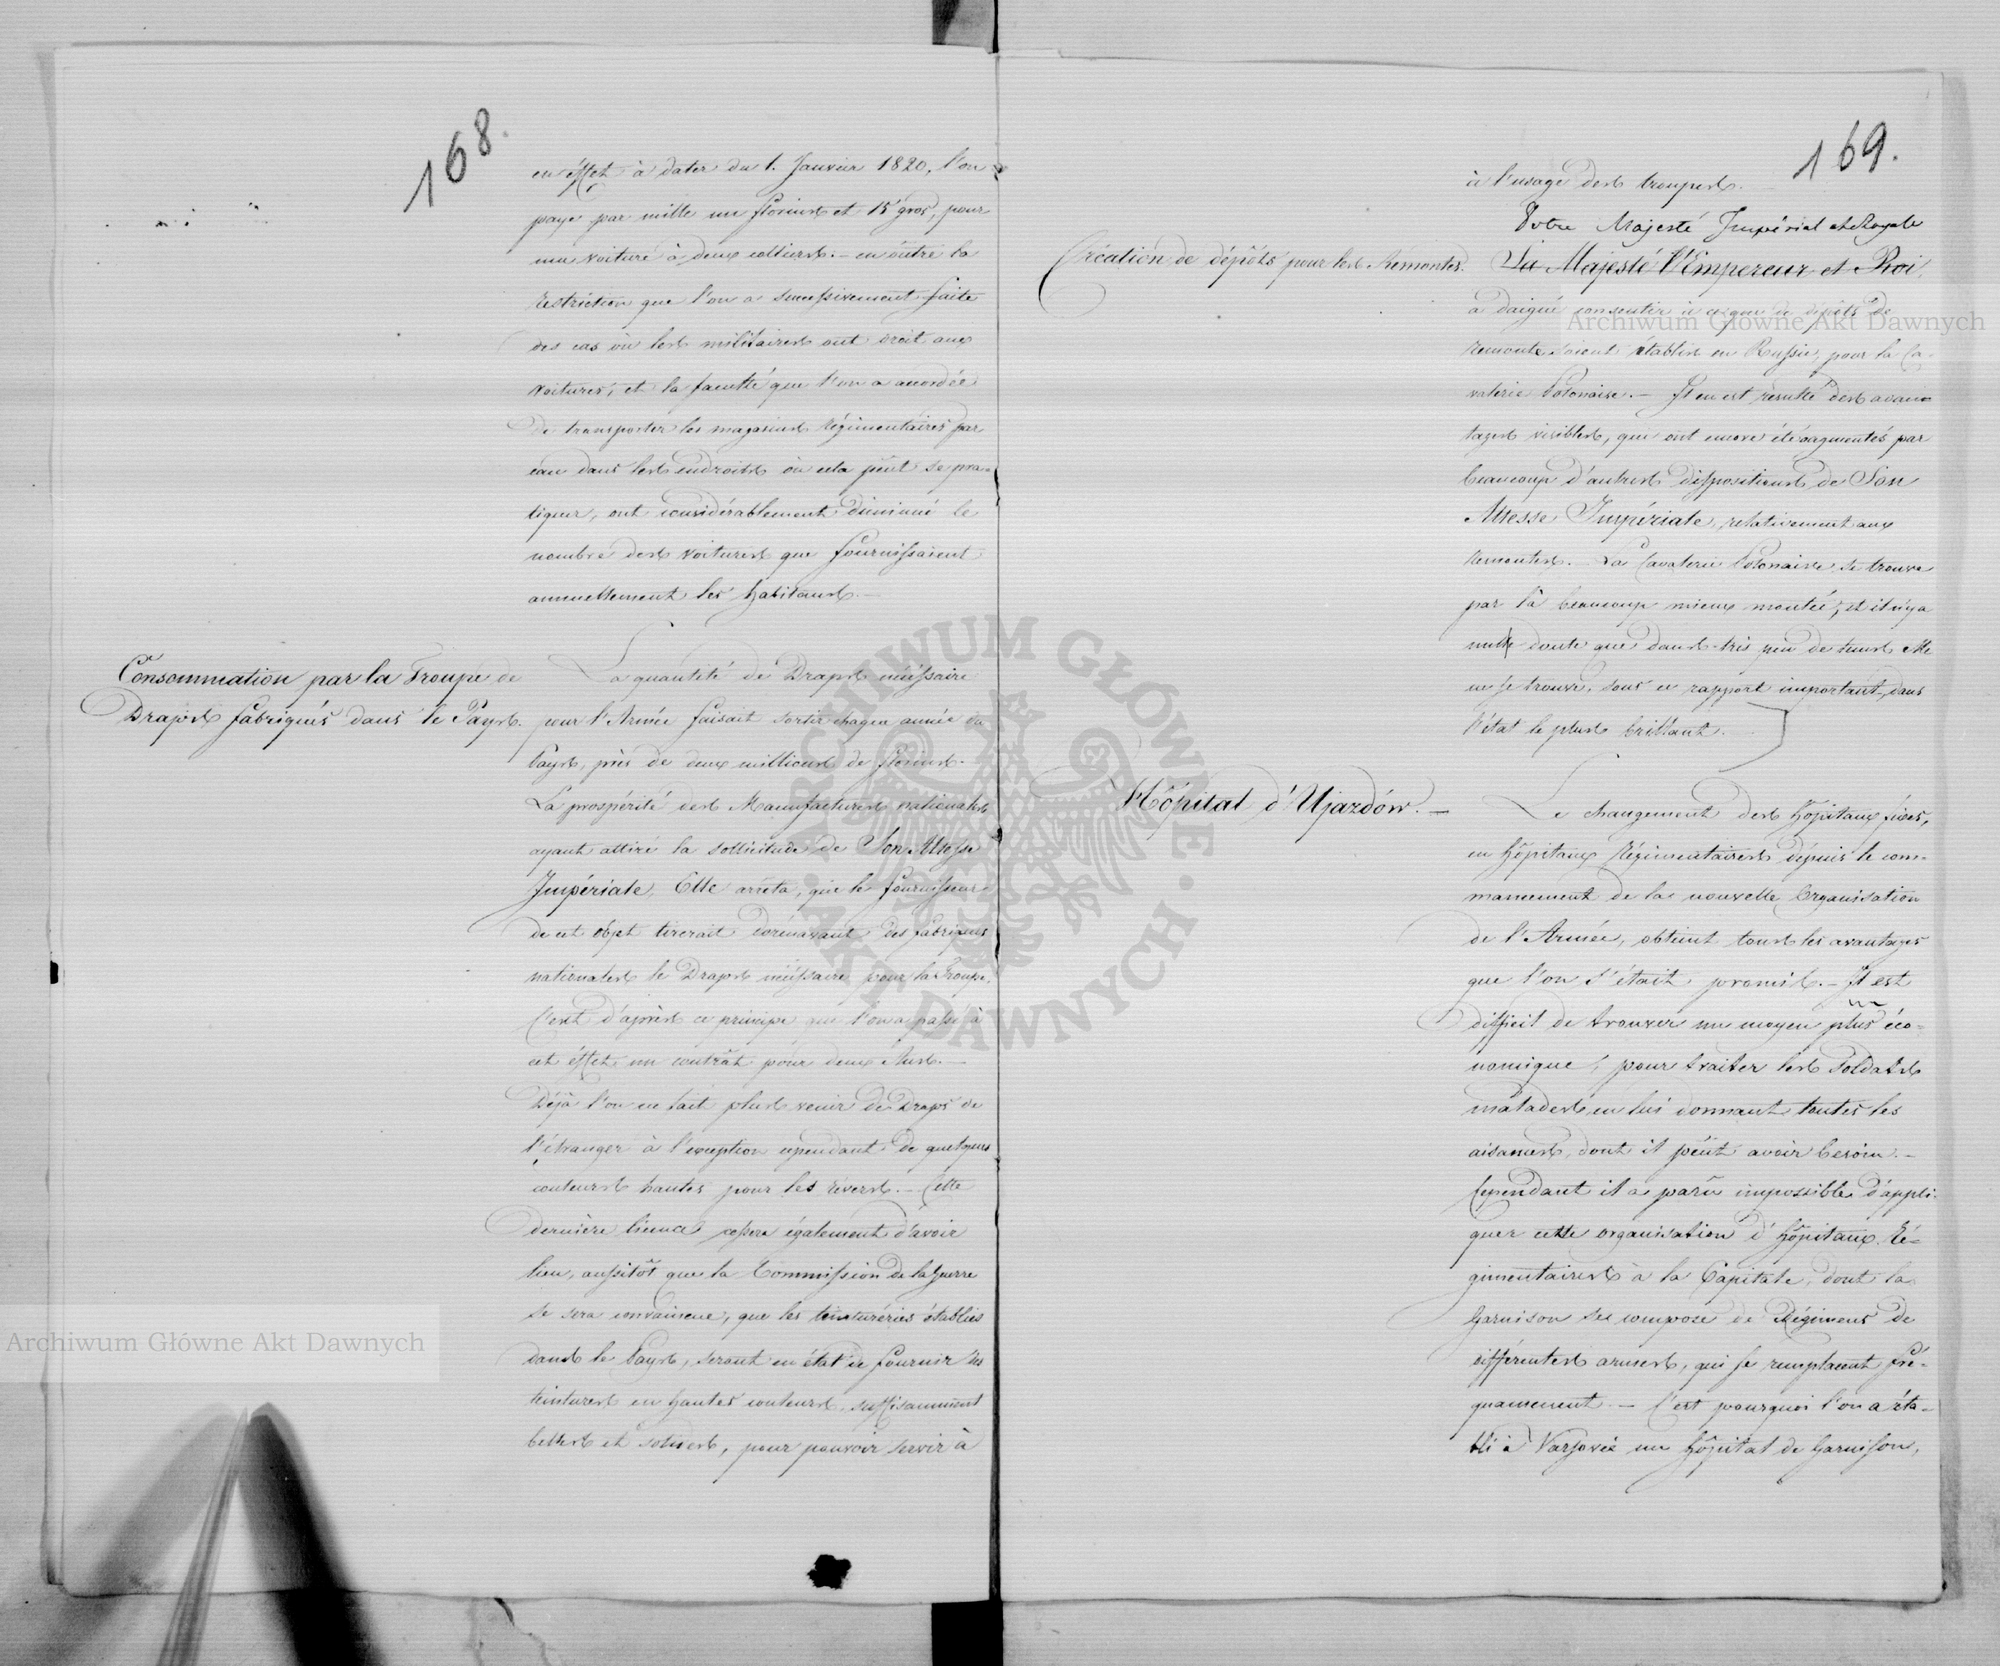 168.
en éffet à dater du 1. Janvier 1820, l'on
paye par mille un florins et 15 gros, pour
une voiture à deux colliers. – en outre la
restriction que l'on a successivement faite
des cas où les militaires ont droit aux
voitures, et la faculté que l'on a accordée
de transporter les magasins régimentaires par
eau dans les endroits où cela peût se pra-
tiquer, ont considérablement diminué le
nombre des voitures que fournissaient
annuellement les habitans. –
Consommation par la Troupe de
Draps fabriqués dans le Pays.
La quantité de Draps nécéssaire
pour l'Armée faisait sortir chaque année du
Pays, près de deux millions de florins.
La prospérité des Manufactures nationales
ayant attiré la sollicitude de Son Altesse
Impériale, Elle arrêta, que le fournisseur
de cet objet tirerait dorénavant des fabriques
nationales le Draps nécéssaire pour la Troupe.
C'est d'après ce principe que l'on a passé à
cet éffet un contrât pour deux Ans. –
Déjà l'on ne fait plus venir de Draps de
l'étranger à l'exception cependant de quelques
couleurs hautes pour les revers. – Cette
dernière licence cessera également d'avoir
lieu, aussitôt que la Commission de la Guerre
se sera convaincue, que les teinturéries établies
dans le Pays, seront en état de fournir des
teintures en hautes couleurs, suffisamment
belles et solides, pour pouvoir servir à
169.
à l'usage des troupes.
Votre Majesté Impérial et Royale
Création de dépôts pour les Remontes.
Sa Majesté l'Empereur et Roi,
a daigné consentir à ce que de dépôts de
remonte soient établis en Russie, pour la Ca-
valerie Polonaise. – Il en est résulté des avan-
tages visibles, qui ont encore été augmentés par
beaucoup d'autres dispositions de Son
Altesse Impériale, relativement aux
remontes. – La Cavalerie Polonaise se trouve
par là beaucoup mieux montée, et il n'y a
nulle doute que dans très peu de tems Elle
ne se trouve, sous ce rapport important, dans
l'état le plus brillant. –
Hôpital d'Ujazdów. –
Le changement des hôpitaux fixes,
en hôpitaux régimentaires depuis le com-
mancement de la nouvelle Organisation
de l'Armée, obtient tous les avantages
que l'on s'était promis. – Il est
difficil de trouver un moyen plus éco-
nomique, pour traiter les Soldats
malades en lui donnant toutes les
aisances, dont il peût avoir besoin. –
Cependant il a parû impossible d'appli-
quer cette organisation d'hôpitaux Ré-
gimentaires à la Capitale, dont la
Garnison se compose de Régimens de
différentes armes, qui se remplacent fré-
quamement. – C'est pourquoi l'on a éta-
bli à Varsovie un hôpital de Garnison,
Archiwum Główne Akt Dawnych
Archiwum Główne Akt Dawnych
ARCHIWUM GŁÓWNE · AKT DAWNYCH ·